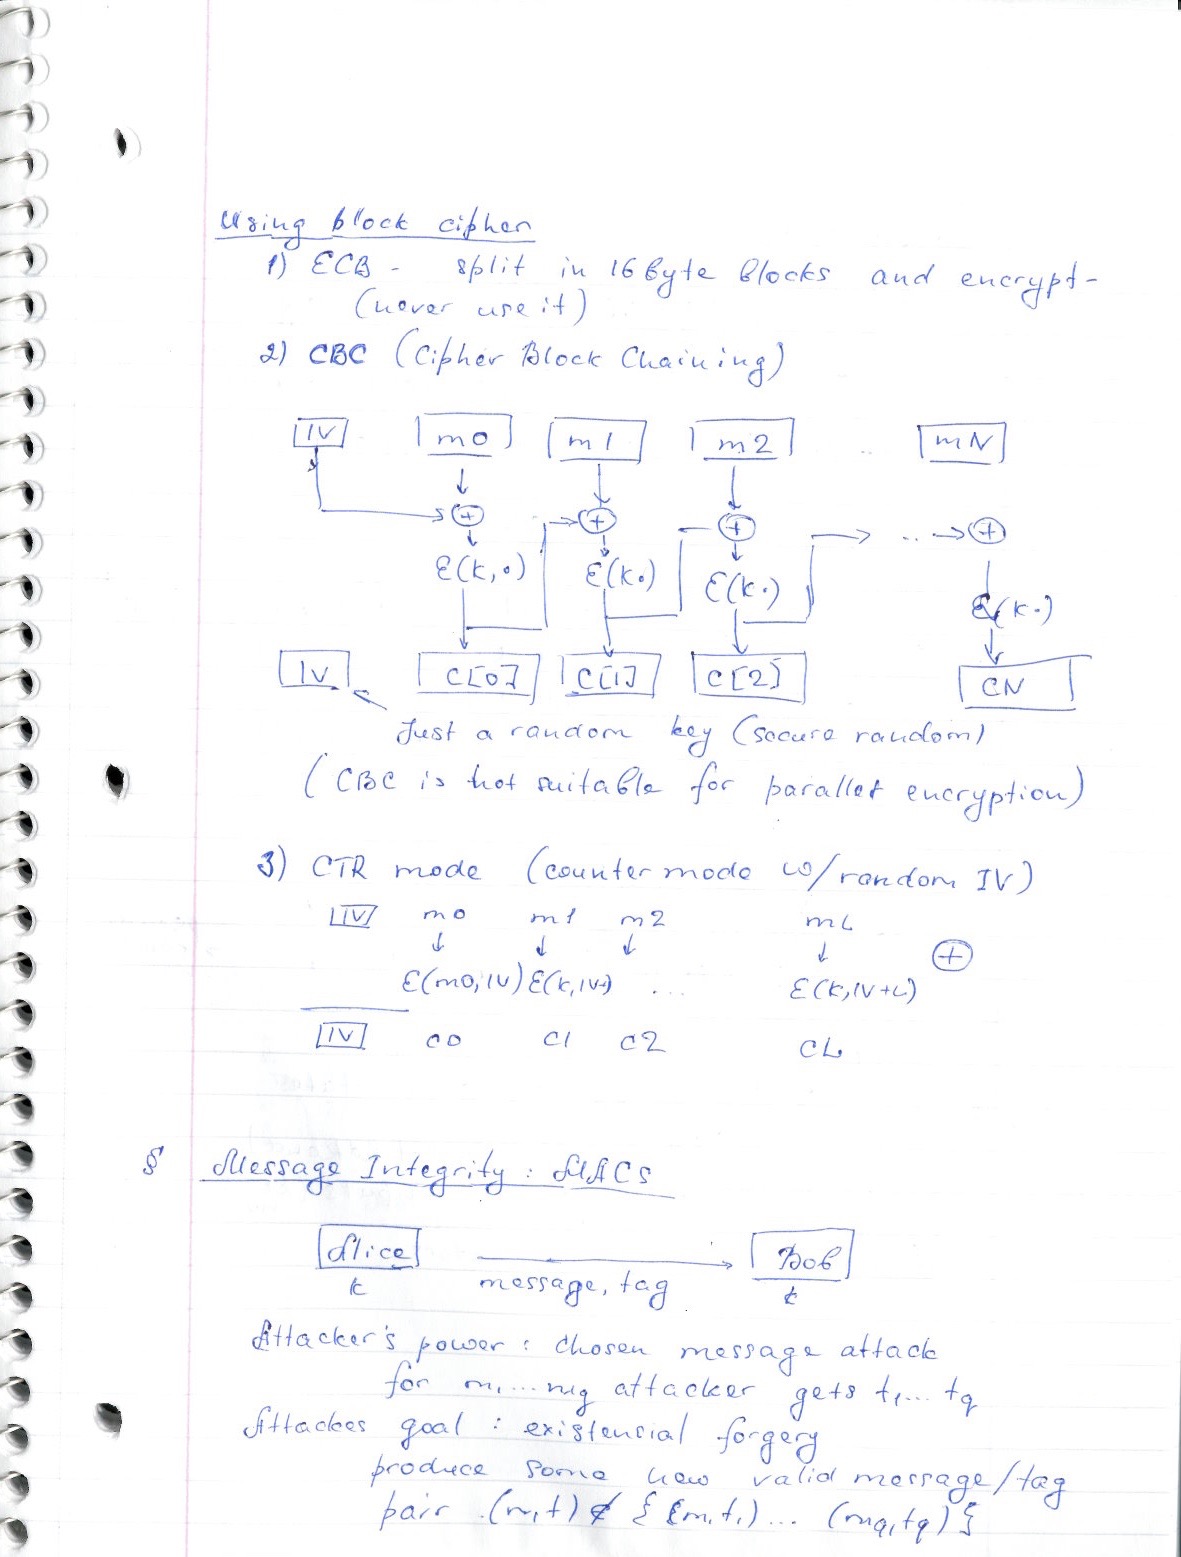 Using block cipher
1) ECB - split in 16 byte blocks and encrypt -
(never use it)
2) CBC (Cipher Block Chaining)
IV m0 m1 m2 .. mN
+ + + .. +
E(k, •) E(k•) E(k•) E(k•)
IV C[0] C[1] C[2] CN
Just a random key (secure random)
(CBC is not suitable for parallel encryption)
3) CTR mode (counter mode w/random IV)
IV m0 m1 m2 mL
+
E(m0, IV) E(k, IV+) ... E(k, IV+L)
IV C0 C1 C2 CL
§ Message Integrity : MACs
Alice Bob
k message, tag k
Attacker's power : chosen message attack
for m1 ... mq attacker gets t1 ... tq
Attackes goal : existensial forgery
produce some new valid message/tag
pair (m,t) ∉ { (m1 t1) ... (mq, tq) }